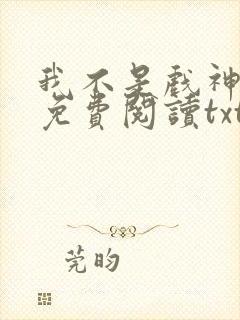 我不是戲神
免費閱讀txt
莞昀